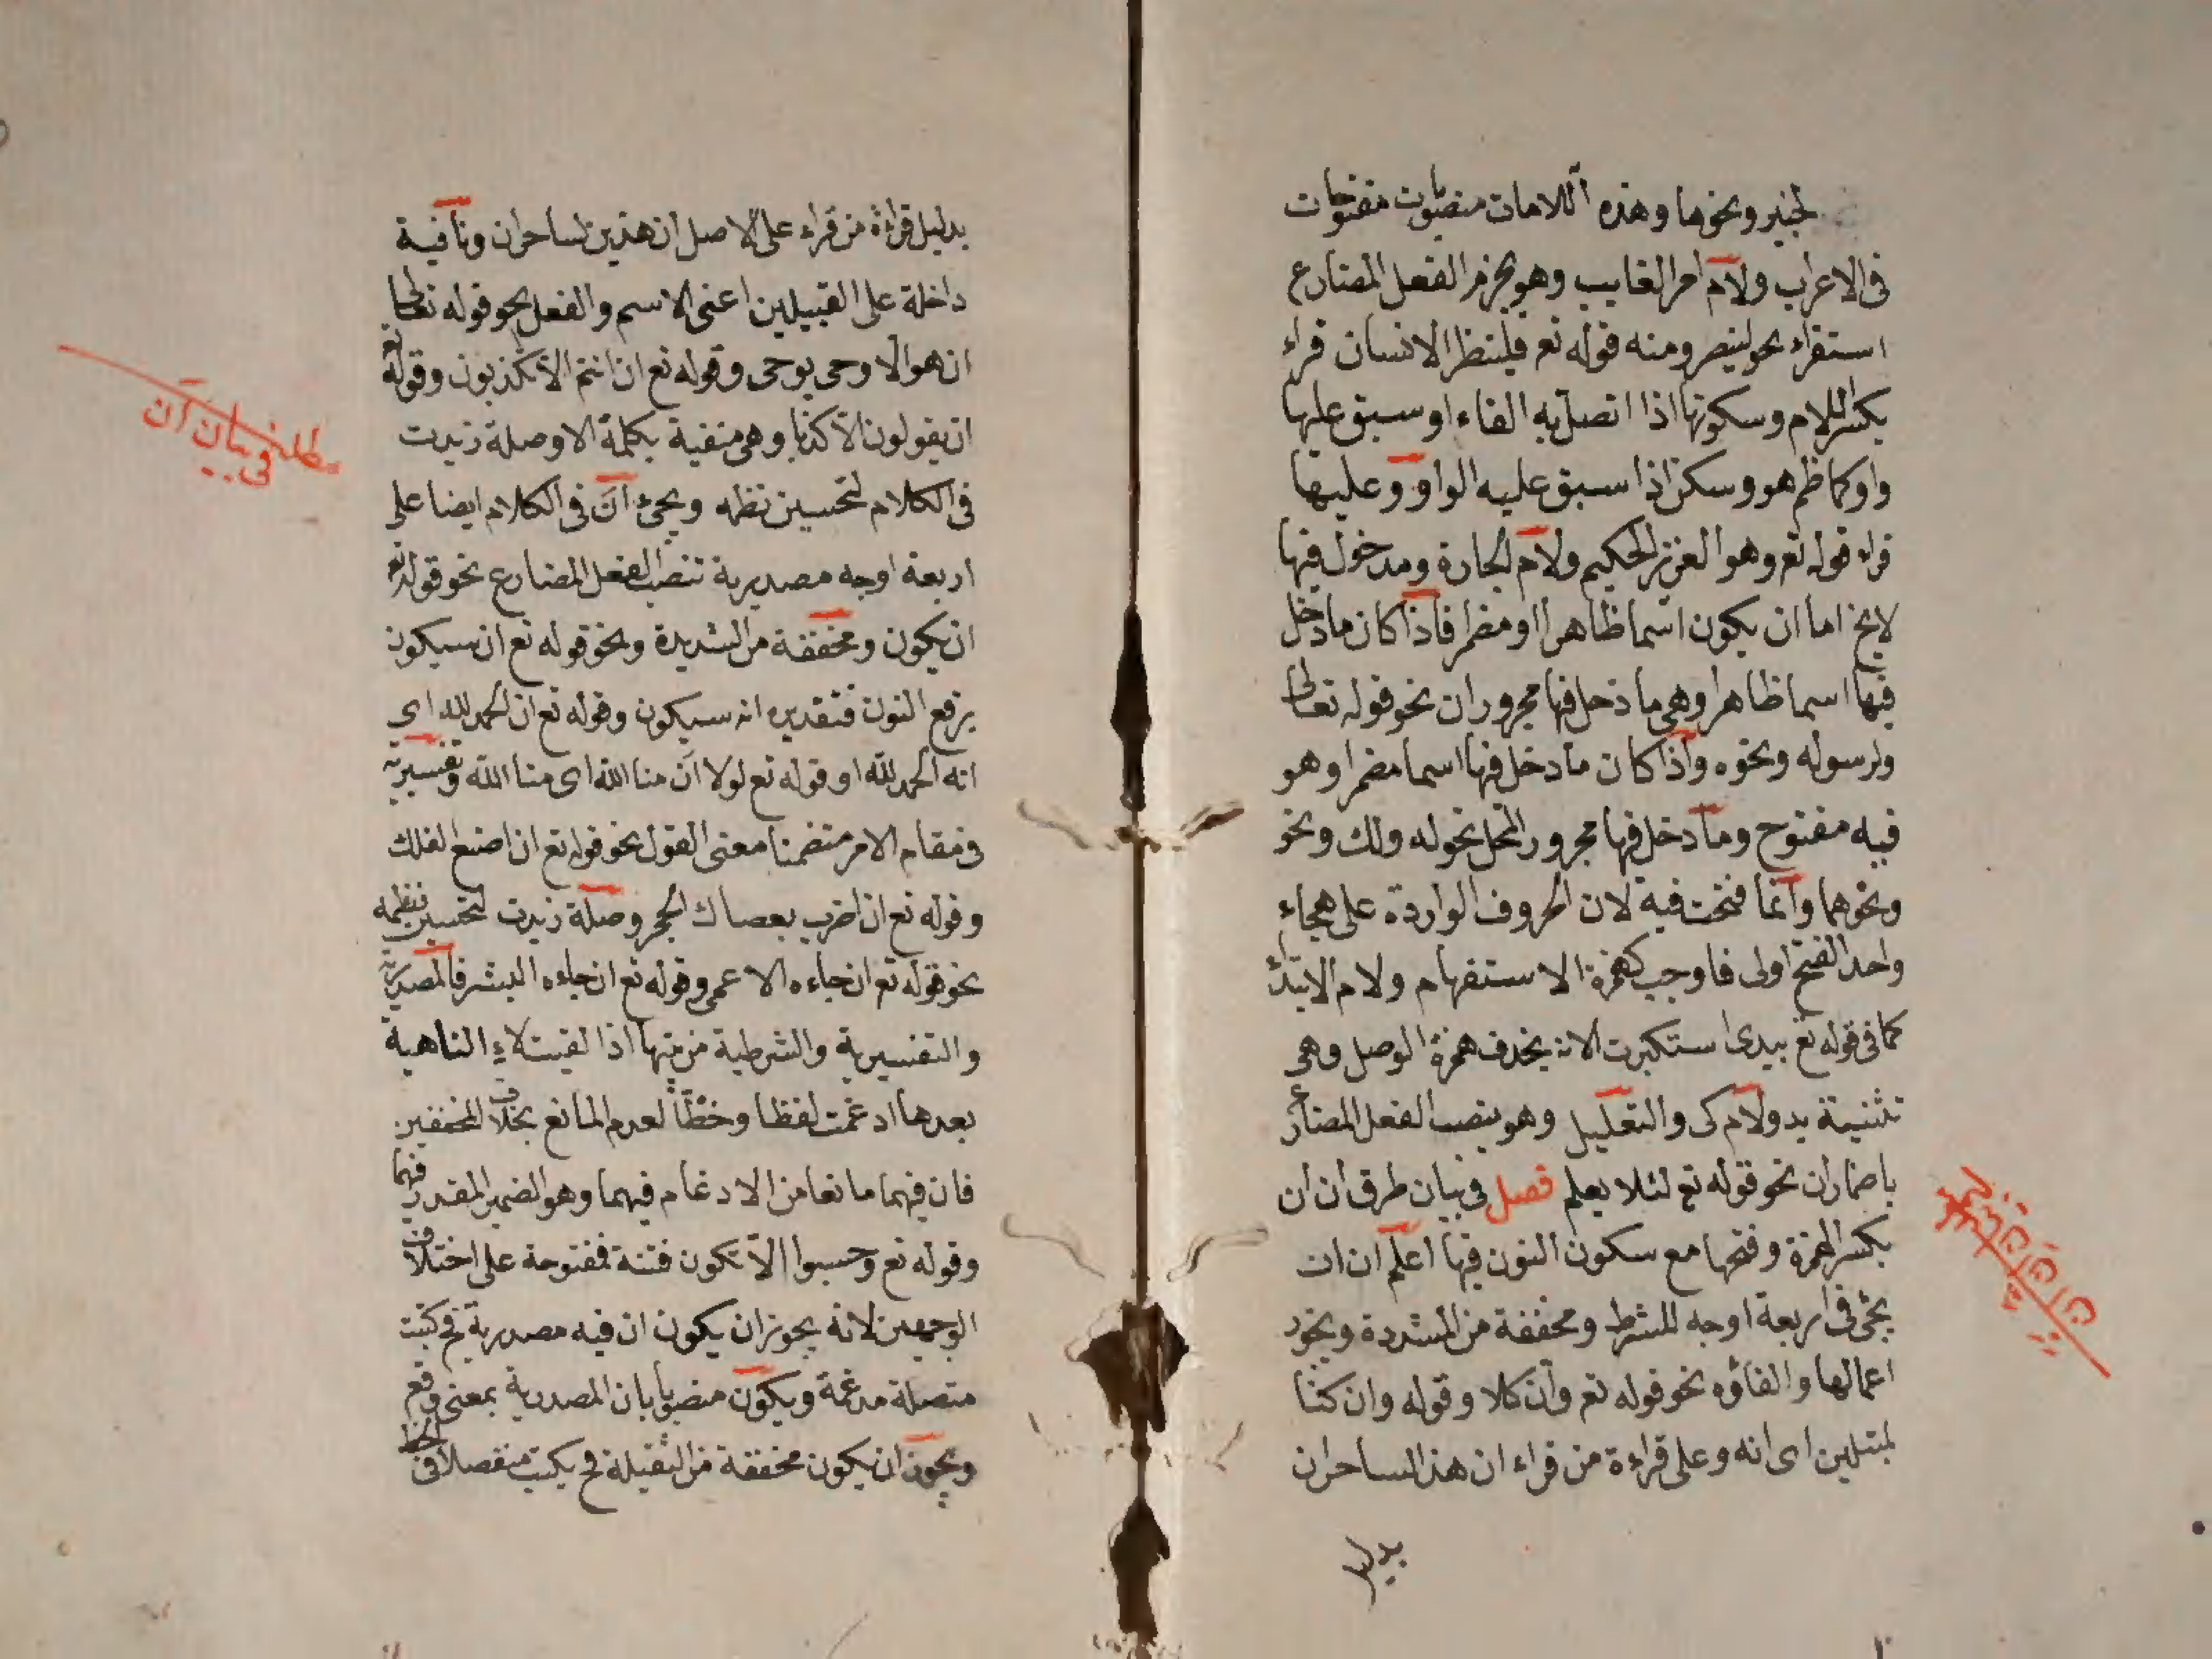 لخبير ونحوها وهذه اللامات منصوبات مفتوحات
فى الاعراب ولام امر الغايب وهو يجزم الفعل المضارع
استقراء نحو لينصر ومنه قوله تع فلينظر الانسان قراء
بكسر اللام وسكونها اذا اتصل به الفاء او سبق عليها
واو كما ظم هو وسكن اذا سبق عليه الواو وعليها
قراء قوله تع وهو العزيز الحكيم ولام الجارة ومدخول فيها
لايخ اما ان يكون اسما ظاهرا او مضمرا فاذا كان ما دخل
فيها اسما ظاهرا وهى ما دخل فيها مجروران نحو قوله تعالى
ولرسوله ونحوه واذا كان ما دخل فيها اسما مضمرا وهو
فيه مفتوح وما دخل فيها مجرور المحل نحو له ولك ونحو
ونحوهما وانما فتحت فيه لان الحروف الواردة على هجاء
واحد الفتح اولى فاوجب كهمزة الاستفهام ولام الابتداء
كما فى قوله تع بيدى استكبرت الانه يحذف همزة الوصل وهى
تثنية يد ولام كى والتعليل وهو ينصب الفعل المضارع
باضمار ان نحو قوله تع لئلا يعلم فصل فى بيان طرق ان ان
بكسر الهمزة وفتحها مع سكون النون فيها اعلم ان ان
يجئ فى اربعة اوجه للشرط ومخففة من المشددة ويجوز
اعمالها والغاؤه نحو قوله تع وان كلا وقوله وان كنا
لمبتلين اى انه وعلى قراءة من قراء ان هذا لساحران
بدليل
بدليل قراءة من قراء على الاصل ان هذين لساحران ونافية
داخلة على القبيلين اعنى الاسم والفعل نحو قوله تعالى
ان هو الا وحى يوحى وقوله تع ان انتم الا تكذبون وقوله تع
ان يقولون الا كذبا وهى منفية بكلمة الا وصلة زيدت
فى الكلام لتحسين نظمه ويجئ ان فى الكلام ايضا على
اربعة اوجه مصدرية تنصب الفعل المضارع نحو قوله تع
ان يكون ومخففة من الشديدة ونحو قوله تع ان سيكون
برفع النون فتقديره انه سيكون وقوله تع ان الحمد لله اى
انه الحمد لله او قوله تع لولا ان منا الله اى منا الله وتفسيرية
فى مقام الامر متضمنا معنى القول نحو قوله تع ان اصنع الفلك
وقوله تع ان اضرب بعصاك الحجر وصلة زيدت لتحسين نظمه
نحو قوله تع ان جاءه الاعمى وقوله تع ان جاءه البشر فالمصدرية
والتفسيرية والشرطية من بينها اذا لقيت لاء الناهية
بعدها ادغمت لفظا وخطا لعدم المانع بخلاف المخففين
فان فيهما مانعا من الادغام فيهما وهو الضمير المقدر فيهما
وقوله تع وحسبوا الا تكون فتنة مفتوحة على اختلاف
الوجهين لانه يجوز ان يكون ان فيه مصدرية فح كتبت
متصلة مدغمة ويكون منصوبا بان المصدرية بمعنى وقع
ويجوز ان يكون مخففة من الثقيلة فح يكتب منفصلا فى الخط
مطلب فى بيان ان